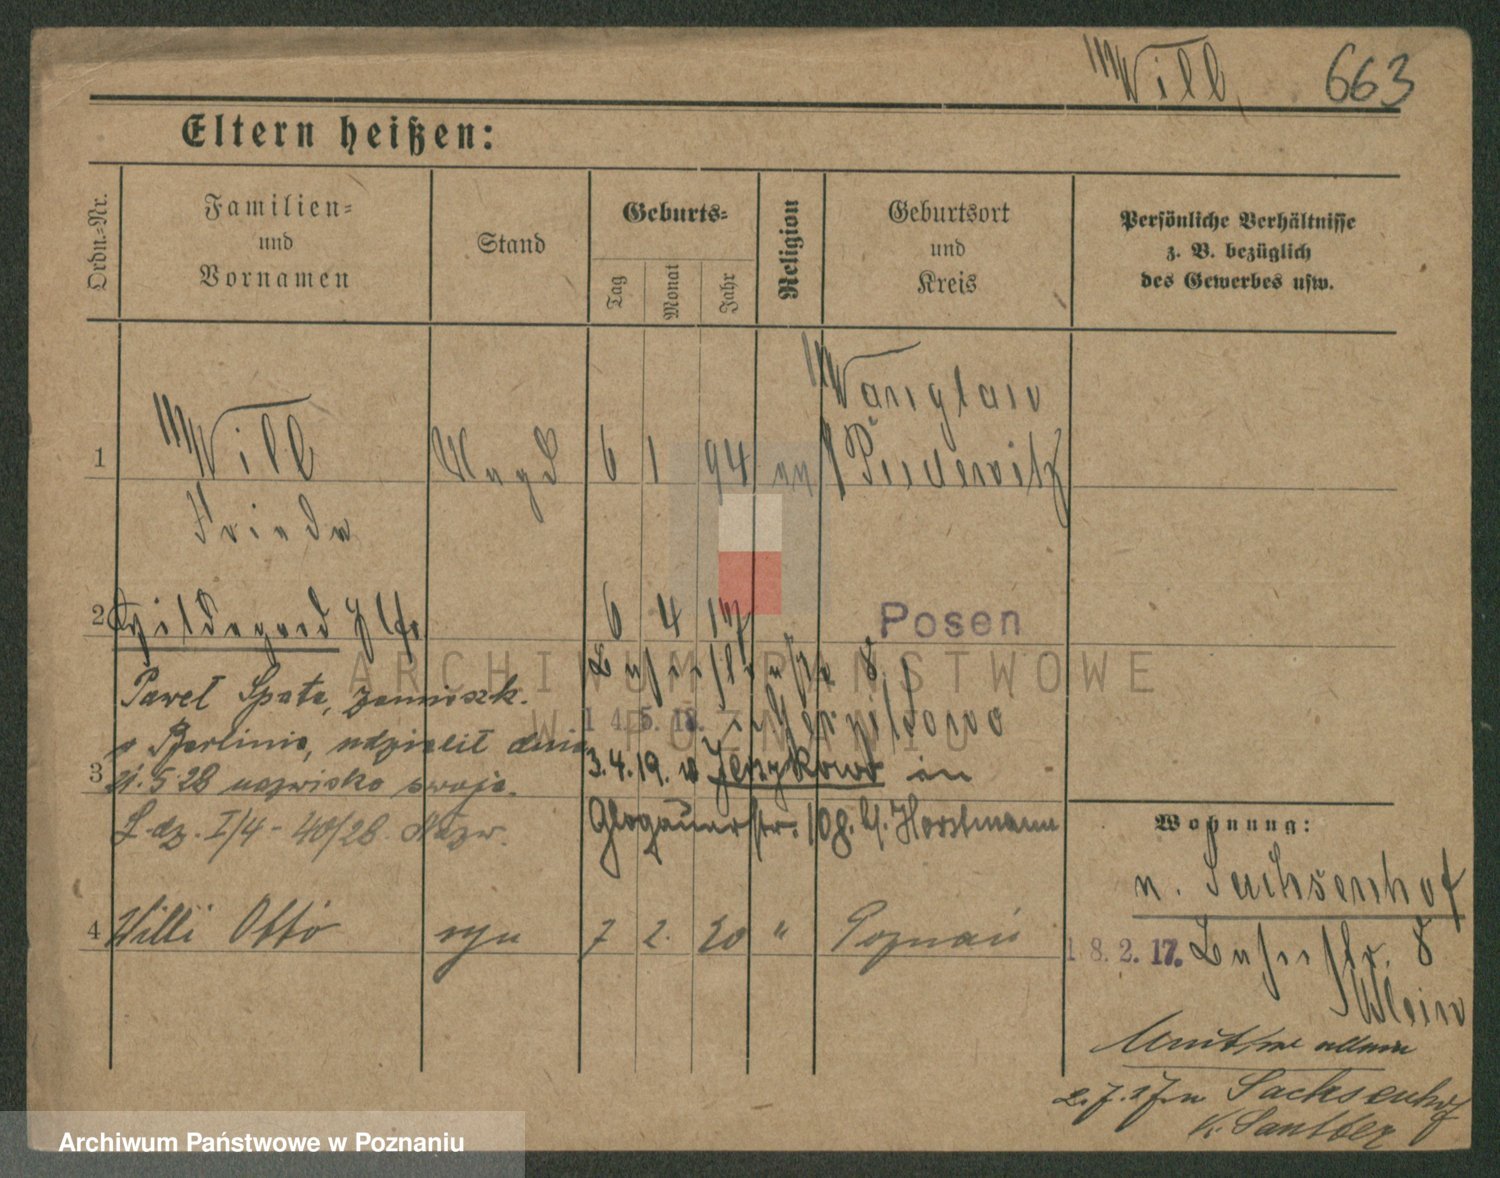 Will 663
Eltern heißen:
Ordn.-Nr.
Familien-
und
Vornamen
Stand
Geburts-
Tag
Monat
Jahr
Religion
Geburtsort
und
Kreis
Persönliche Verhältnisse
z. B. bezüglich
des Gewerbes usw.
1 Will Magd 6 1 94
Wanglau
Pudewitz
Frieda
2 Hildegard 6 4 17 Posen
Paweł Spata, zamieszk.
w Berlinie, udzielił dnia
21.5.28 nazwisko swoje.
L. dz. I/4 - 40/28. Nazw.
14.5.18.
3
3.4.19. w Jerzykowo in
Glogauerstr. 108. b/. Horstmann
4 Willi Otto syn 7 2. 20 " Poznań
Wohnung:
n. Sachsenhof
18.2.17. Luisenstr. 8
Klein
2.7.17 n Sachsenhof
ARCHIWUM PAŃSTWOWE
W POZNANIU
Archiwum Państwowe w Poznaniu